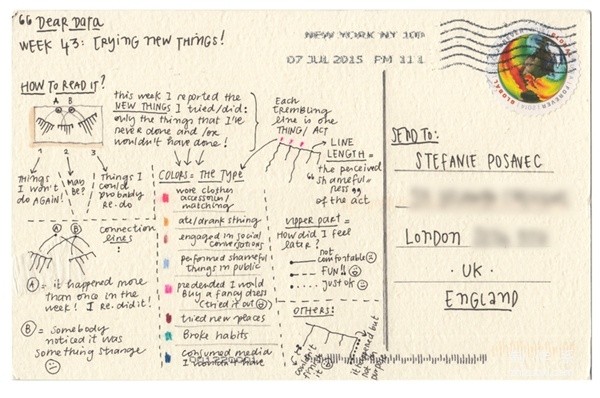 " Dear Data
WEEK 43: TRYING NEW THINGS!
HOW TO READ IT?
A B
1 2 3
THINGS I WON'T DO AGAIN!
MAYBE?
THINGS I COULD PROBABLY RE-DO
this week I reported the
NEW THINGS I TRIED/DID:
only the things that I've
never done and/or
wouldn't have done!
Each
TREMBLING
LINE IS ONE
THING/ACT
LINE
LENGTH =
= the perceived
"shameful-
ness"
of the act
COLORS = THE TYPE
wore clother
accessories/
matching
ate/drank sthing
engaged in social
conversations
performed shameful
things in public
pretended I would
buy a fancy dress
(tried it out)
tried new places
Broke habits
consumed media
I wouldn't have
UPPER PART =
How did I feel
later?
not
comfortable
FUN!!
just ok
OTHERS:
couldn't
it happened but
not on
purpose
connection
lines:
A B
A = it happened more
than once in the
week! I re-did it!
B = somebody
noticed it was
something strange
NEW YORK NY 100
07 JUL 2015 PM 11 L
GLOBAL
FOREVER
SEND TO:
STEFANIE POSAVEC
LONDON
· UK ·
ENGLAND